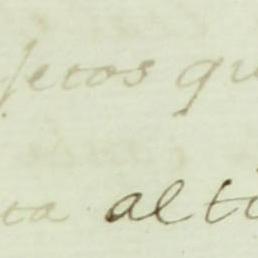 jetos qu
ta alti